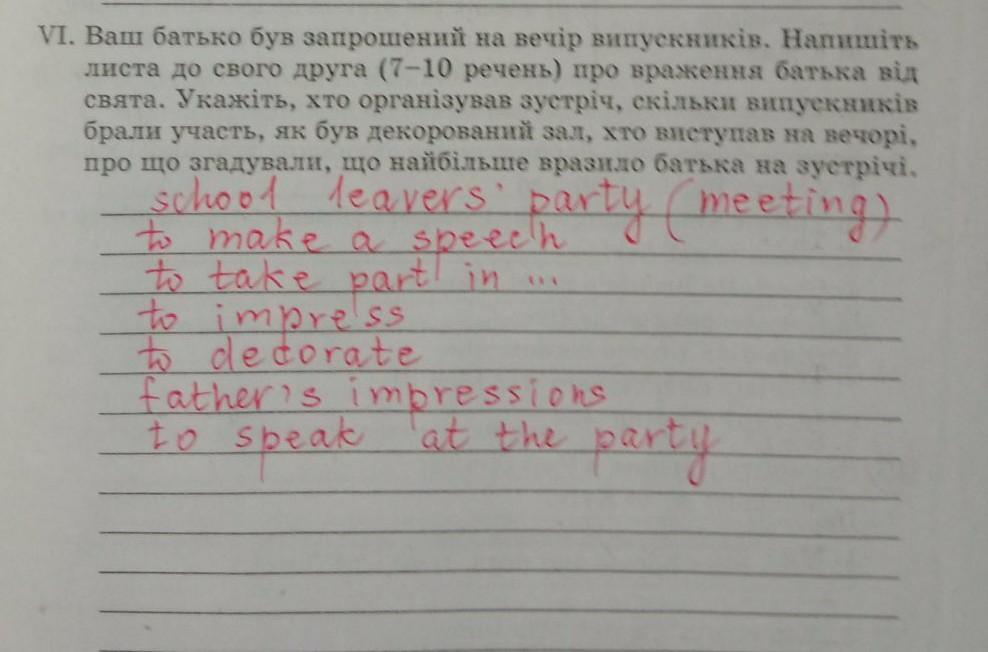 VI. Ваш батько був запрошений на вечір випускників. Напишіть
листа до свого друга (7–10 речень) про враження батька від
свята. Укажіть, хто організував зустріч, скільки випускників
брали участь, як був декорований зал, хто виступав на вечорі,
про що згадували, що найбільше вразило батька на зустрічі.
school leavers' party (meeting)
to make a speech
to take part in ...
to impress
to decorate
father's impressions
to speak at the party